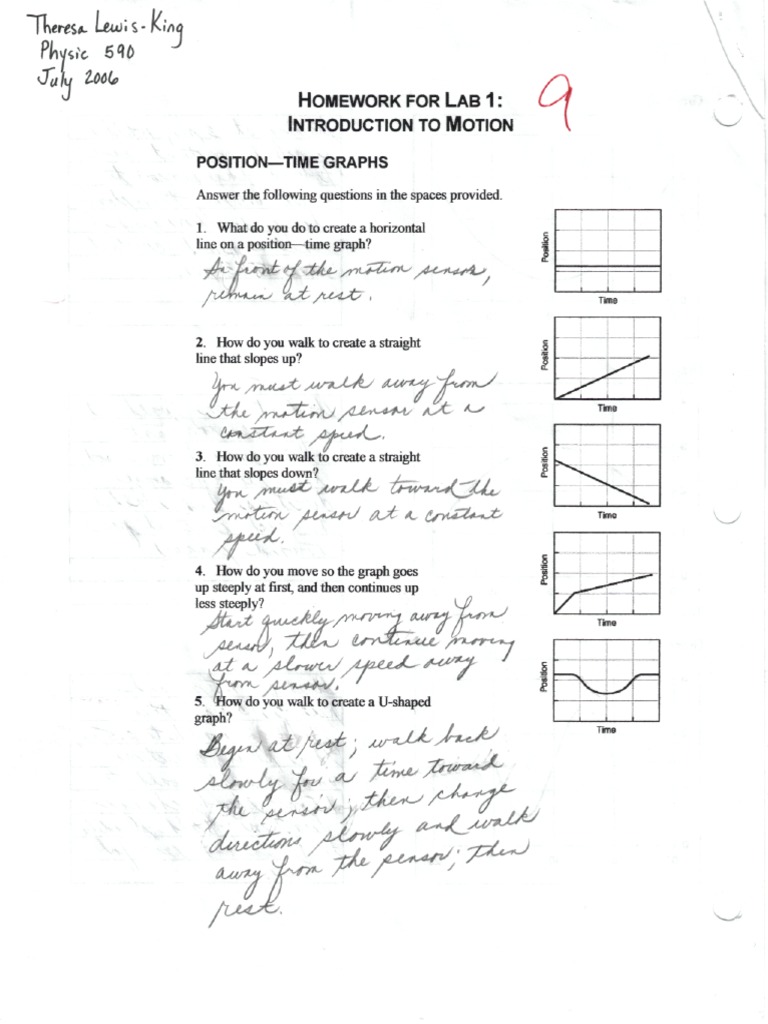 Theresa Lewis-King
Physic 590
July 2006
HOMEWORK FOR LAB 1:
INTRODUCTION TO MOTION
9
POSITION—TIME GRAPHS
Answer the following questions in the spaces provided.
1. What do you do to create a horizontal
line on a position—time graph?
In front of the motion sensor,
remain at rest.
Position
Time
2. How do you walk to create a straight
line that slopes up?
You must walk away from
the motion sensor at a
constant speed.
Position
Time
3. How do you walk to create a straight
line that slopes down?
You must walk toward the
motion sensor at a constant
speed.
Position
Time
4. How do you move so the graph goes
up steeply at first, and then continues up
less steeply?
Start quickly moving away from
sensor, then continue moving
at a slower speed away
from sensor.
Position
Time
5. How do you walk to create a U-shaped
graph?
Begin at rest; walk back
slowly for a time toward
the sensor; then change
directions slowly and walk
away from the sensor; then
rest.
Position
Time